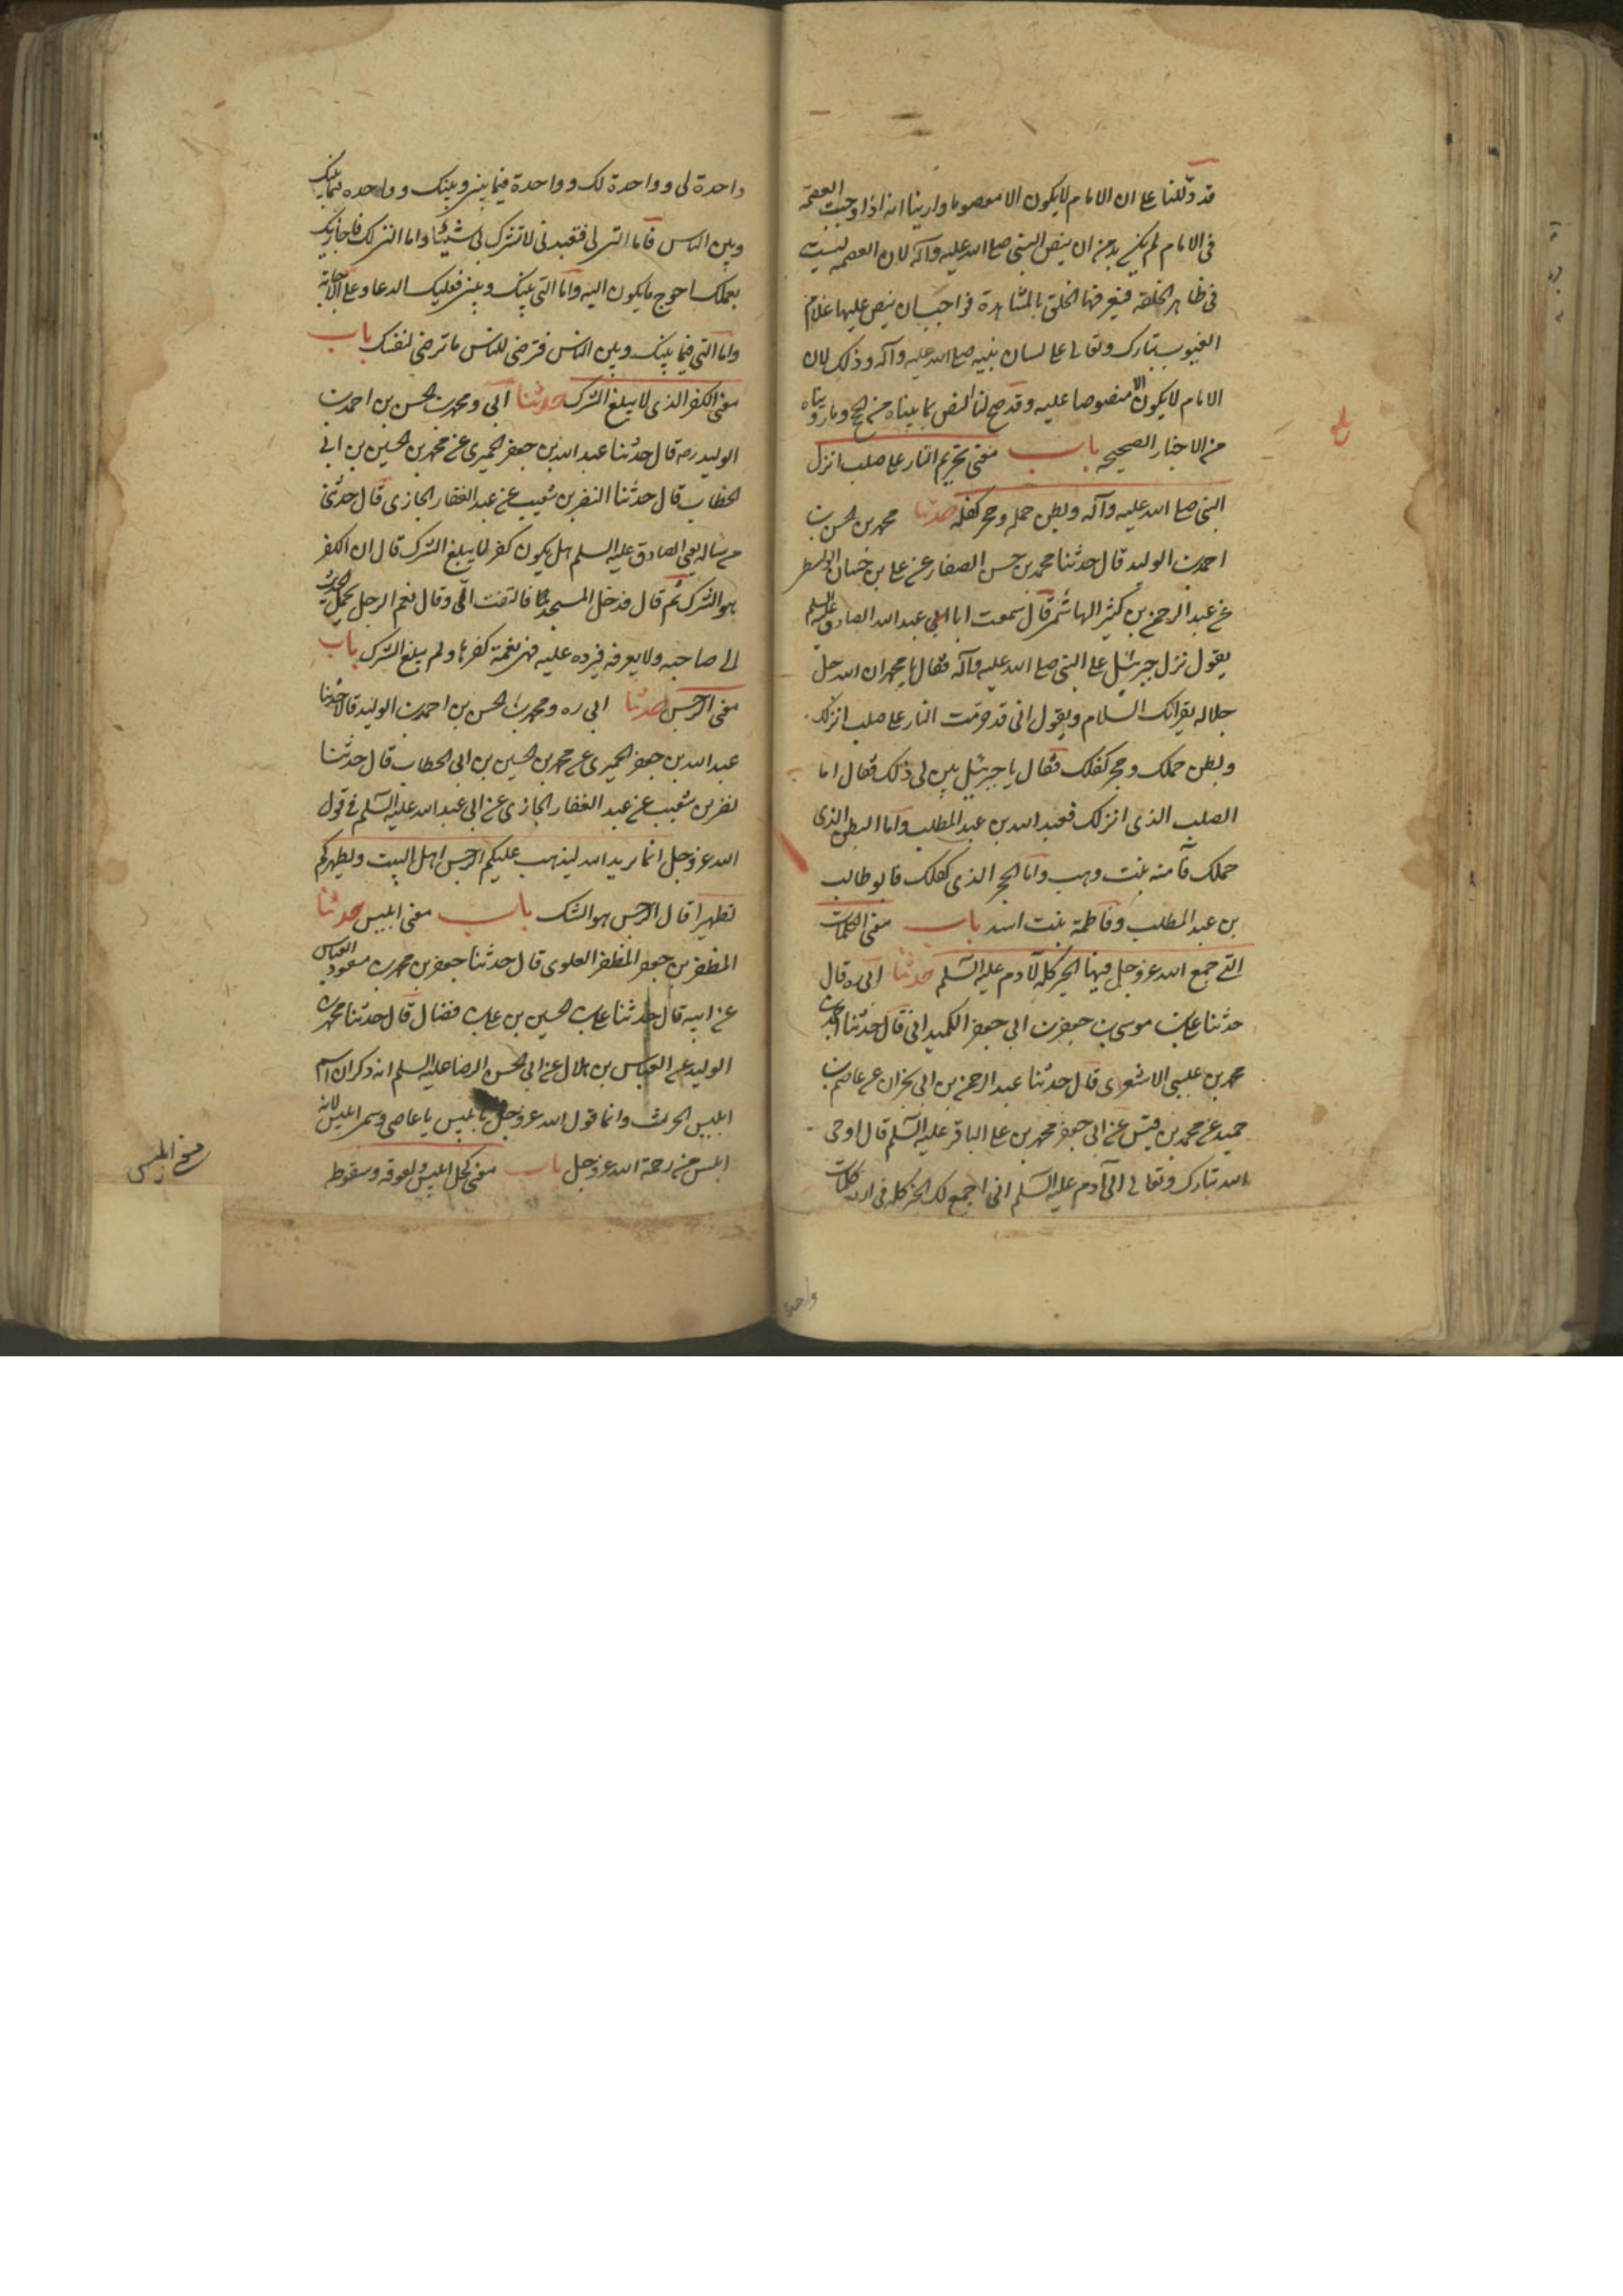 قد دللنا على ان الامام لا يكون الا معصوما وارينا انه اذا وجبت العصمة
فى الامام لم يكن بد من ان ينص النبى صلى الله عليه وآله لان العصمة ليست
فى ظاهر الخلقة فيعرفها الخلق بالمشاهدة فواجب ان ينص عليها علام
الغيوب تبارك وتعالى على لسان نبيه صلى الله عليه وآله وذلك لان
الامام لا يكون الا منصوصا عليه وقد صح لنا النص بما بيناه من الحجج وما رويناه
من الاخبار الصحيحه باب معنى تحريم النار على صلب انزل
النبى صلى الله عليه وآله وبطن حمله وحجر كفله حدثنا محمد بن الحسن بن
احمد بن الوليد قال حدثنا محمد بن حسن الصفار عن على بن حسان الواسطى
عن عبد الرحمن بن كثير الهاشمى قال سمعت ابا عبد الله الصادق عليه السلم
يقول نزل جبرئيل على النبى صلى الله عليه وآله فقال يا محمد ان الله جل
جلاله يقرائك السلام ويقول انى قد حرمت النار على صلب انزلك
وبطن حملك وحجر كفلك فقال يا جبرئيل بين لى ذلك فقال اما
الصلب الذى انزلك فعبد الله بن عبد المطلب واما البطن الذى
حملك فآمنه بنت وهب واما الحجر الذى كفلك فابو طالب
بن عبد المطلب وفاطمة بنت اسد باب معنى الكلمات
التى جمع الله عز وجل فيها الخير كله لآدم عليه السلم حدثنا ابى ره قال
حدثنا على بن موسى بن جعفر بن ابى جعفر الكميدانى قال حدثنا احمد بن
محمد بن عيسى الاشعرى قال حدثنا عبد الرحمن بن ابى نجران عن عاصم بن
حميد عن محمد بن قيس عن ابى جعفر محمد بن على الباقر عليه السلم قال اوحى
الله تبارك وتعالى الى آدم عليه السلم انى اجمع لك الخير كله فى اربع كلمات
واحدة
واحدة لى وواحدة لك وواحدة فيما بينى وبينك وواحده فيما بينك
وبين الناس فاما التى لى فتعبدنى لا تشرك بى شيئا واما التى لك فاجازيك
بعملك احوج ما يكون اليه واما التى بينك وبينى فعليك الدعا وعلى الاجابة
واما التى فيما بينك وبين الناس فترضى للناس ما ترضى لنفسك باب
معنى الكفر الذى لا يبلغ الشرك حدثنا ابى ومحمد بن الحسن بن احمد بن
الوليد ره قال حدثنا عبد الله بن جعفر الحميرى عن محمد بن الحسين بن ابى
الخطاب قال حدثنا النضر بن شعيب عن عبد الغفار الجازى قال حدثنى
من ساله يعنى الصادق عليه السلم هل يكون كفر لا يبلغ الشرك قال ان الكفر
هو الشرك ثم قال فدخل المسجد فالتفت الى وقال نعم الرجل يحمل الحديث
الى صاحبه ولا يعرفه فيرده عليه فهى نعمة كفرها ولم يبلغ الشرك باب
معنى الرجس حدثنا ابى ره ومحمد بن الحسن بن احمد بن الوليد قالا حدثنا
عبد الله بن جعفر الحميرى عن محمد بن الحسين بن ابى الخطاب قال حدثنا
نضر بن شعيب عن عبد الغفار الجازى عن ابى عبد الله عليه السلم فى قول
الله عز وجل انما يريد الله ليذهب عنكم الرجس اهل البيت ويطهركم
تطهيرا قال الرجس هو الشك باب معنى ابليس حدثنا
المظفر بن جعفر المظفر العلوى قال حدثنا جعفر بن محمد بن مسعود العياسى
عن ابيه قال حدثنا على بن الحسين بن على بن فضال قال حدثنا محمد بن
الوليد عن العباس بن هلال عن ابى الحسن الرضا عليه السلم انه ذكر ان اسم
ابليس الحرث وانما قول الله عز وجل يا ابليس يا عاصى وسمى ابليس لانه
ابلس من رحمة الله عز وجل باب معنى كحل ابليس ولعوقه وسعوطه
معنى ابليس